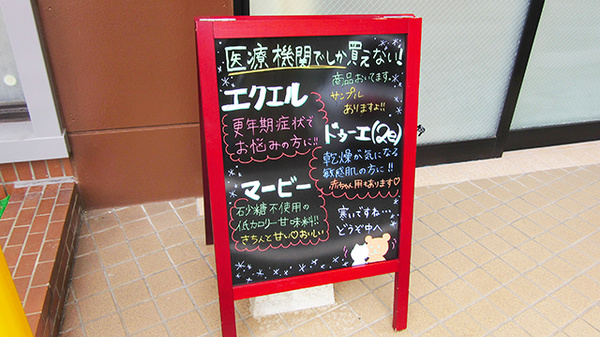 医療機関でしか買えない!
商品おいてます。
サンプル
ありますよ!!
エクエル
更年期症状で
お悩みの方に!!
ドゥーエ(2e)
乾燥が気になる
敏感肌の方に!!
赤ちゃん用もあります♡
マービー
砂糖不使用の
低カロリー甘味料!!
きちんと甘い♡おいしい
寒いですね…
どうぞ中へ